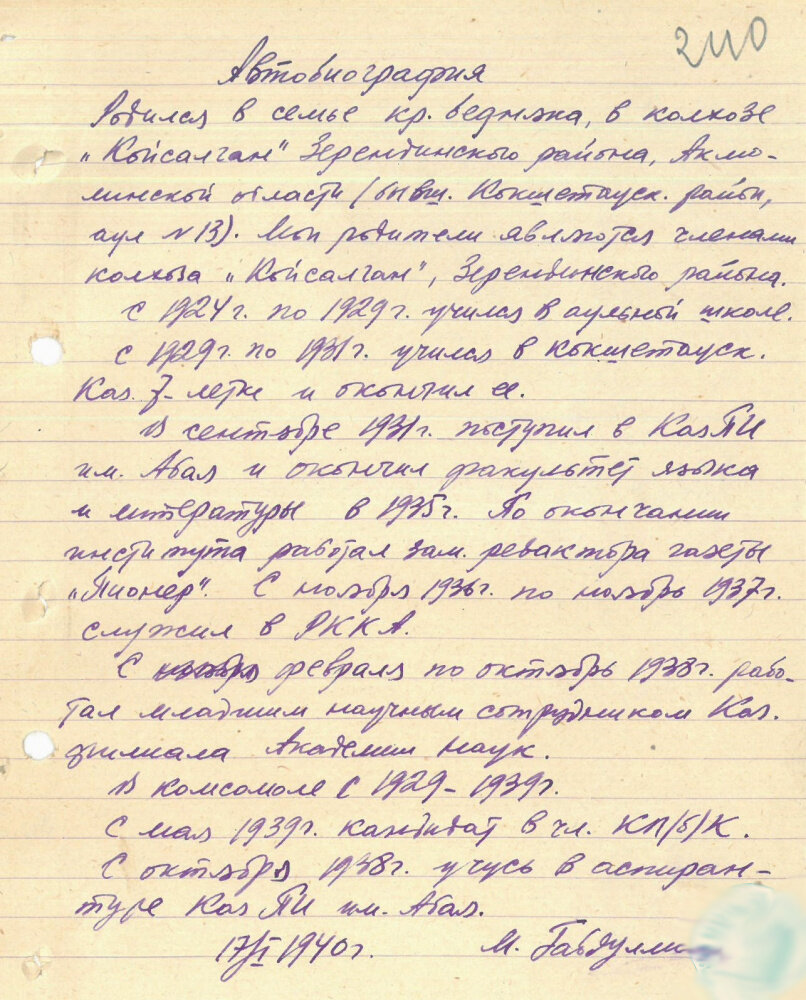 240
Автобиография
Родился в семье кр. бедняка, в колхозе
„Койсалган" Зерендинского района, Акмо-
линской области (бывш. Кокшетауск. район,
аул №13). Мои родители являются членами
колхоза „Койсалган", Зерендинского района.
С 1924 г. по 1929 г. учился в аульной школе.
С 1929 г. по 1931 г. учился в Кокшетауск.
Каз. 7-летке и окончил ее.
В сентябре 1931 г. поступил в КазПИ
им. Абая и окончил факультет языка
и литературы в 1935 г. По окончании
института работал зам. редактора газеты
„Пионер". С ноября 1936 г. по ноябрь 1937 г.
служил в РККА.
С февраля по октябрь 1938 г. рабо-
тал младшим научным сотрудником Каз.
филиала Академии наук.
В комсомоле с 1929 - 1939 г.
С мая 1939 г. кандидат в чл. КП/б/К.
С октября 1938 г. учусь в аспиран-
туре КазПИ им. Абая.
17/I 1940 г. М. Габдуллин